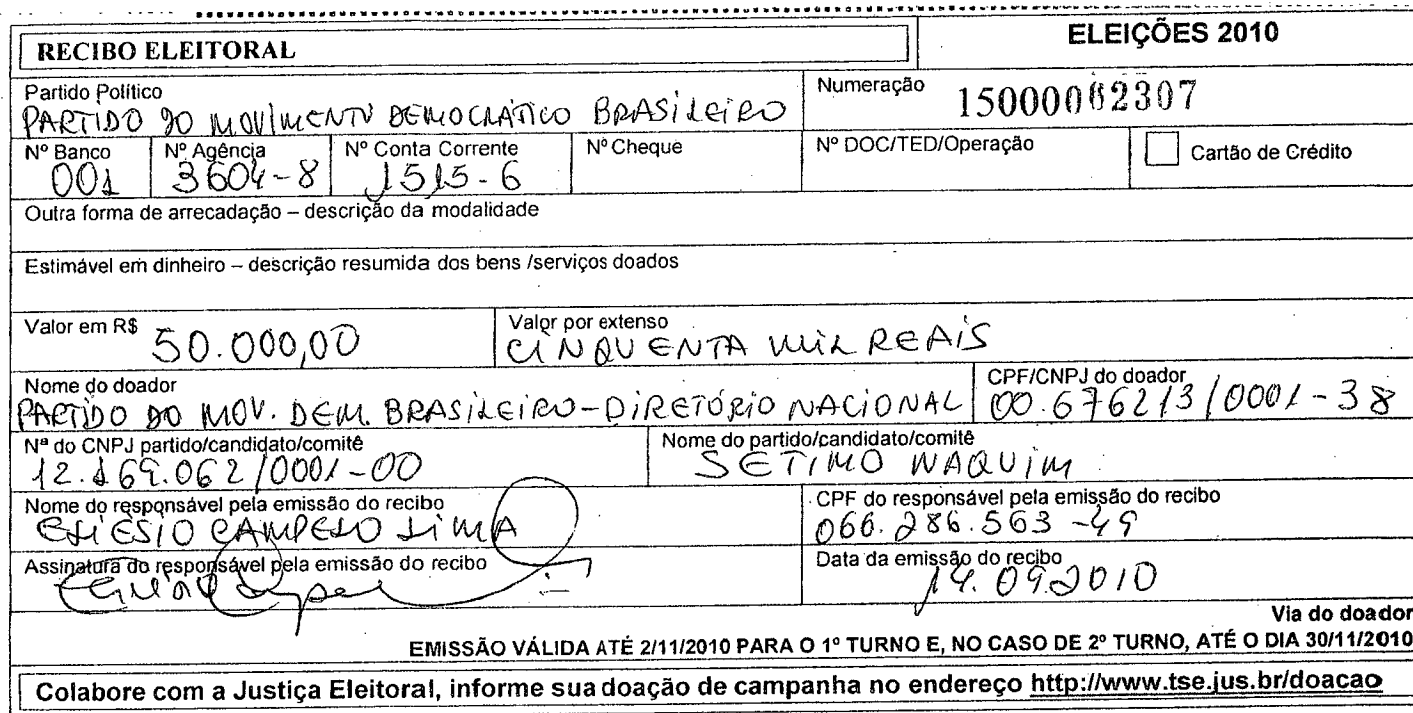 RECIBO ELEITORAL
ELEIÇÕES 2010
Partido Político
PARTIDO DO MOVIMENTO DEMOCRÁTICO BRASILEIRO
Numeração
15000002307
Nº Banco
001
Nº Agência
3604-8
Nº Conta Corrente
1515-6
Nº Cheque
Nº DOC/TED/Operação
Cartão de Crédito
Outra forma de arrecadação – descrição da modalidade
Estimável em dinheiro – descrição resumida dos bens /serviços doados
Valor em R$
50.000,00
Valor por extenso
CINQUENTA MIL REAIS
Nome do doador
PARTIDO DO MOV. DEM. BRASILEIRO-DIRETÓRIO NACIONAL
CPF/CNPJ do doador
00.676213/0001-38
Nª do CNPJ partido/candidato/comitê
12.169.062/0001-00
Nome do partido/candidato/comitê
SETIMO WAQUIM
Nome do responsável pela emissão do recibo
ELIÉSIO CAMPELO LIMA
CPF do responsável pela emissão do recibo
066.286.563-49
Assinatura do responsável pela emissão do recibo
Data da emissão do recibo
14.09.2010
Via do doador
EMISSÃO VÁLIDA ATÉ 2/11/2010 PARA O 1º TURNO E, NO CASO DE 2º TURNO, ATÉ O DIA 30/11/2010
Colabore com a Justiça Eleitoral, informe sua doação de campanha no endereço http://www.tse.jus.br/doacao